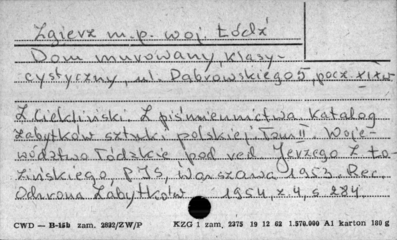 Zgierz m.p. woj. Łódź
Dom murowany, klasy-
cystyczny, ul. Dąbrowskiego 5, pocz. XIX w
Z. Ciekliński. Z piśmiennictwa Katalog
Zabytków sztuki polskiej Tom II. Woje-
wództwo łódzkie pod red. Jerzego Z. Ło-
zińskiego, PIS, Warszawa 1953. Rec.
Ochrona Zabytków 1954, z 4, s 284.
CWD — B-15b zam. 2892/ZW/P KZG 1 zam. 2375 19 12 62 1.570.000 A1 karton 180 g